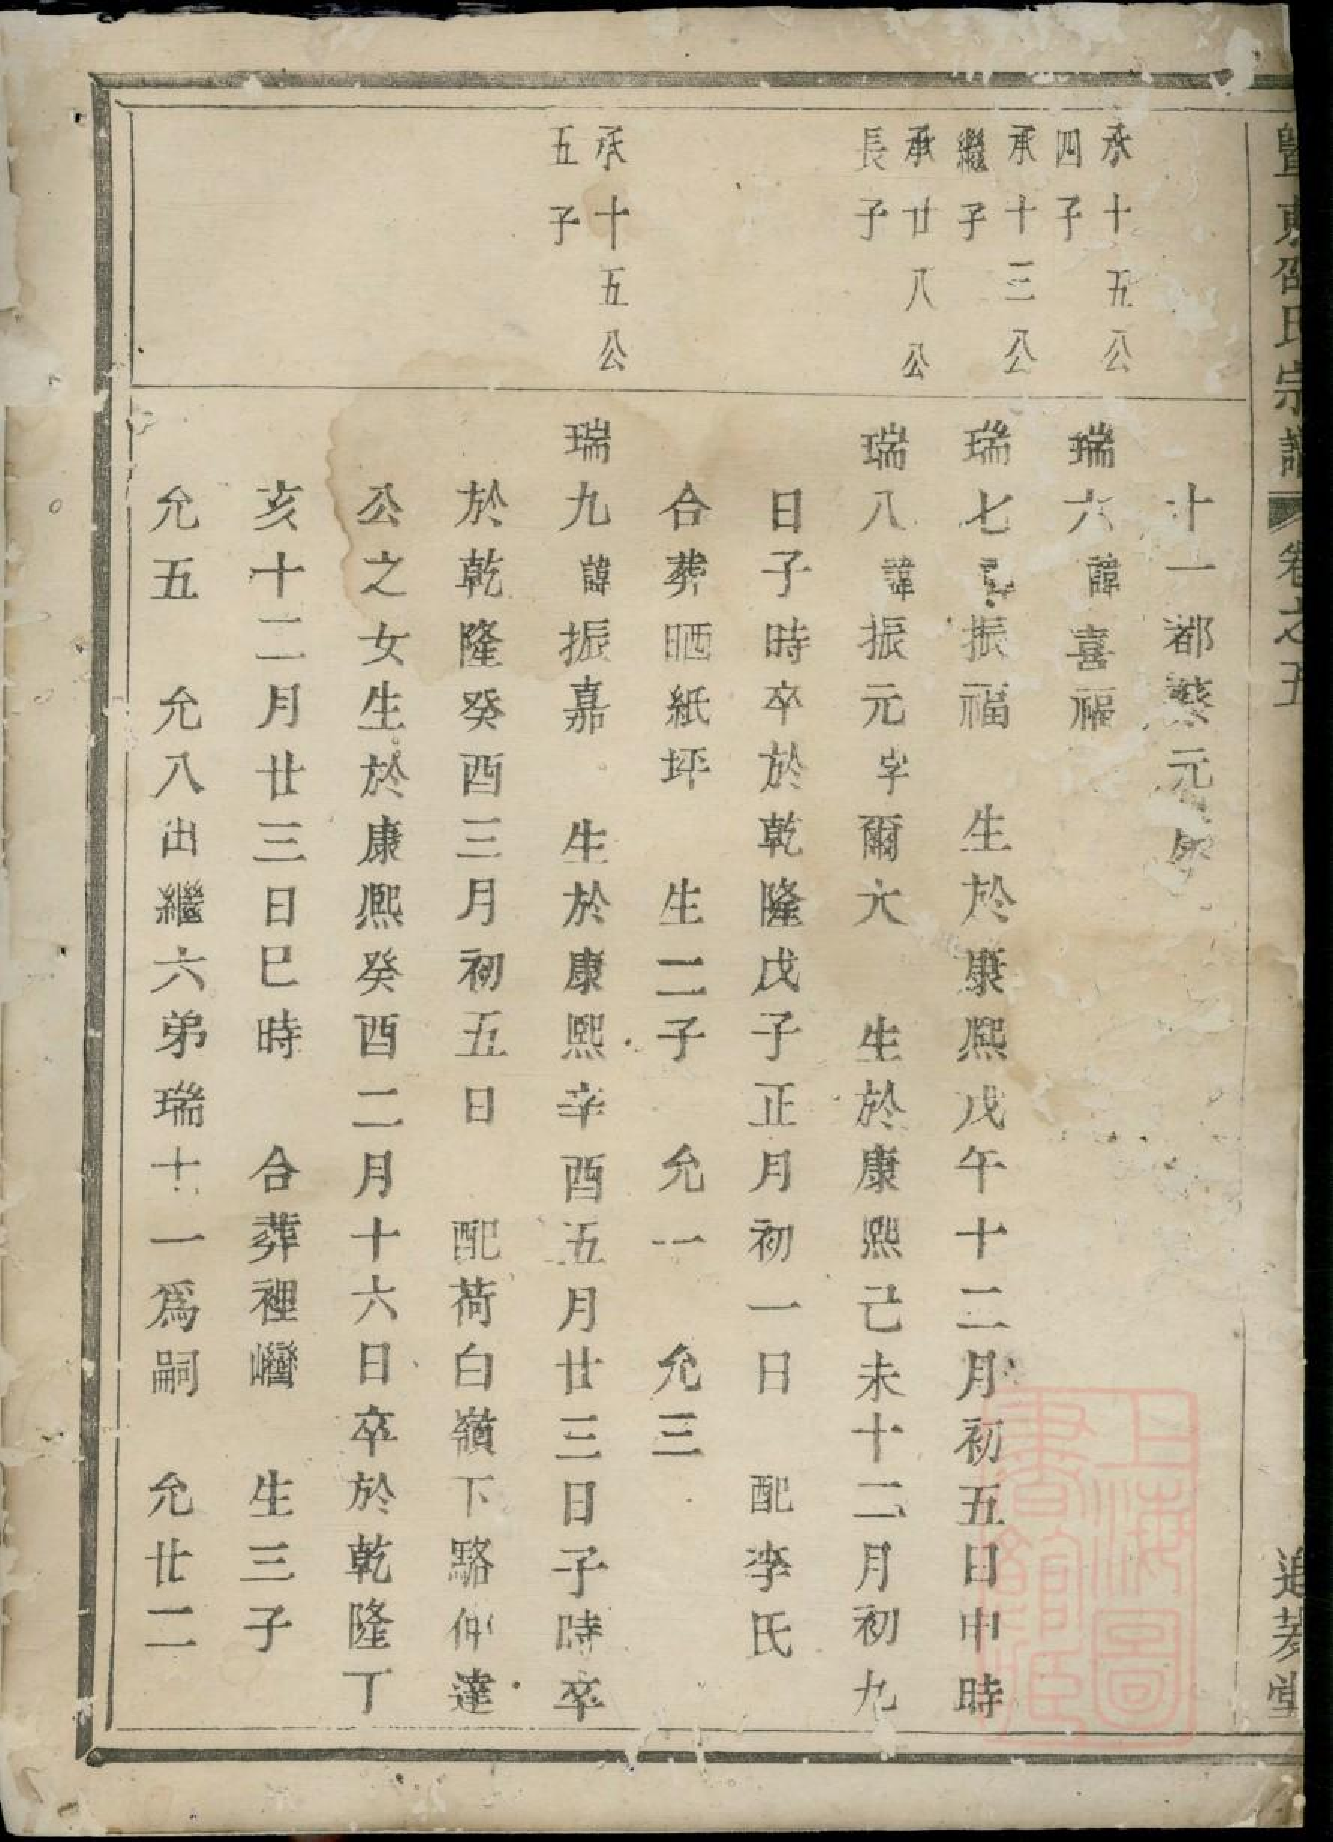 暨東邵氏宗譜 卷之五 追慕堂
十一都蔡元
承十五公
四子
瑞六諱喜福
承十三公
繼子
瑞七 振福 生於康熙戊午十二月初五日申時
承廿八公
長子
瑞八諱振元字爾大 生於康熙己未十二月初九
日子時卒於乾隆戊子正月初一日 配李氏
合葬晒紙坪 生二子 允一 允三
承十五公
五子
瑞九諱振嘉 生於康熙辛酉五月廿三日子時卒
於乾隆癸酉三月初五日 配荷白嶺下駱仲達
公之女生於康熙癸酉二月十六日卒於乾隆丁
亥十二月廿三日巳時 合葬裡灣 生三子
允五 允八出繼六弟瑞十一爲嗣 允廿二
上海圖書館藏